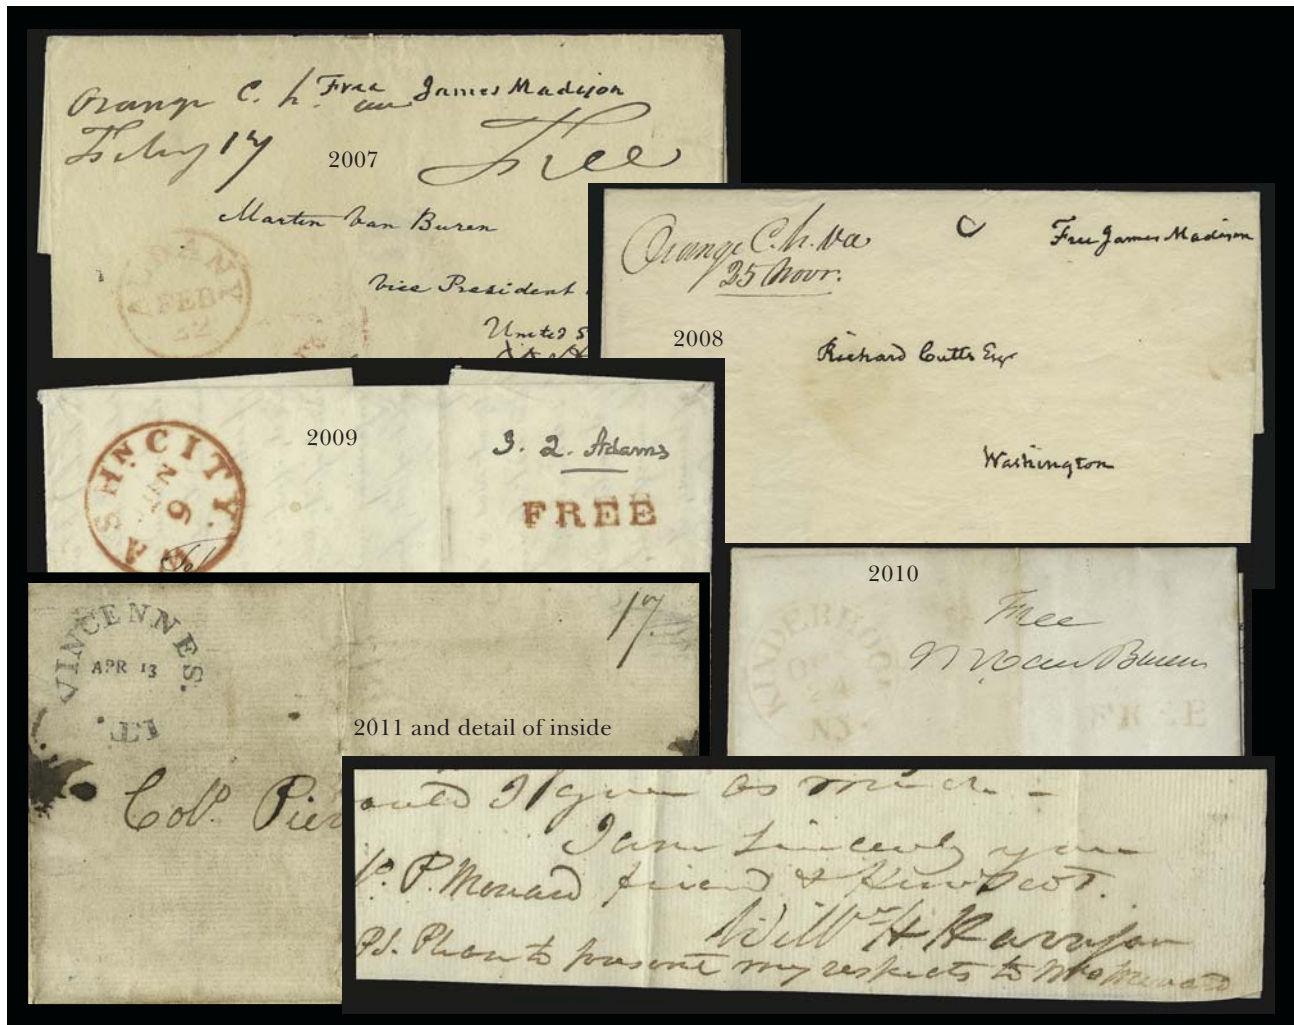 Orange C. h. Free James Madison
Feby 17
Free
2007
Martin Van Buren
ALBANY
FEB
22
Vice President
United S
Orange C.h. Va
25 Novr.
Free James Madison
2008
Richard Cutts Esqr
Washington
WASHN CITY.
JUN
6
2009
J. Q. Adams
FREE
2010
KINDERHOOK
24
N.Y.
Free
M Van Buren
FREE
VINCENNES.
APR 13
I.T.
17
2011 and detail of inside
Colo. Pier
I give as much
I am sincerely your
P. Menard friend & Humb Sevt.
Willm H Harrison
PS. Please to present my respects to Mrs Menard